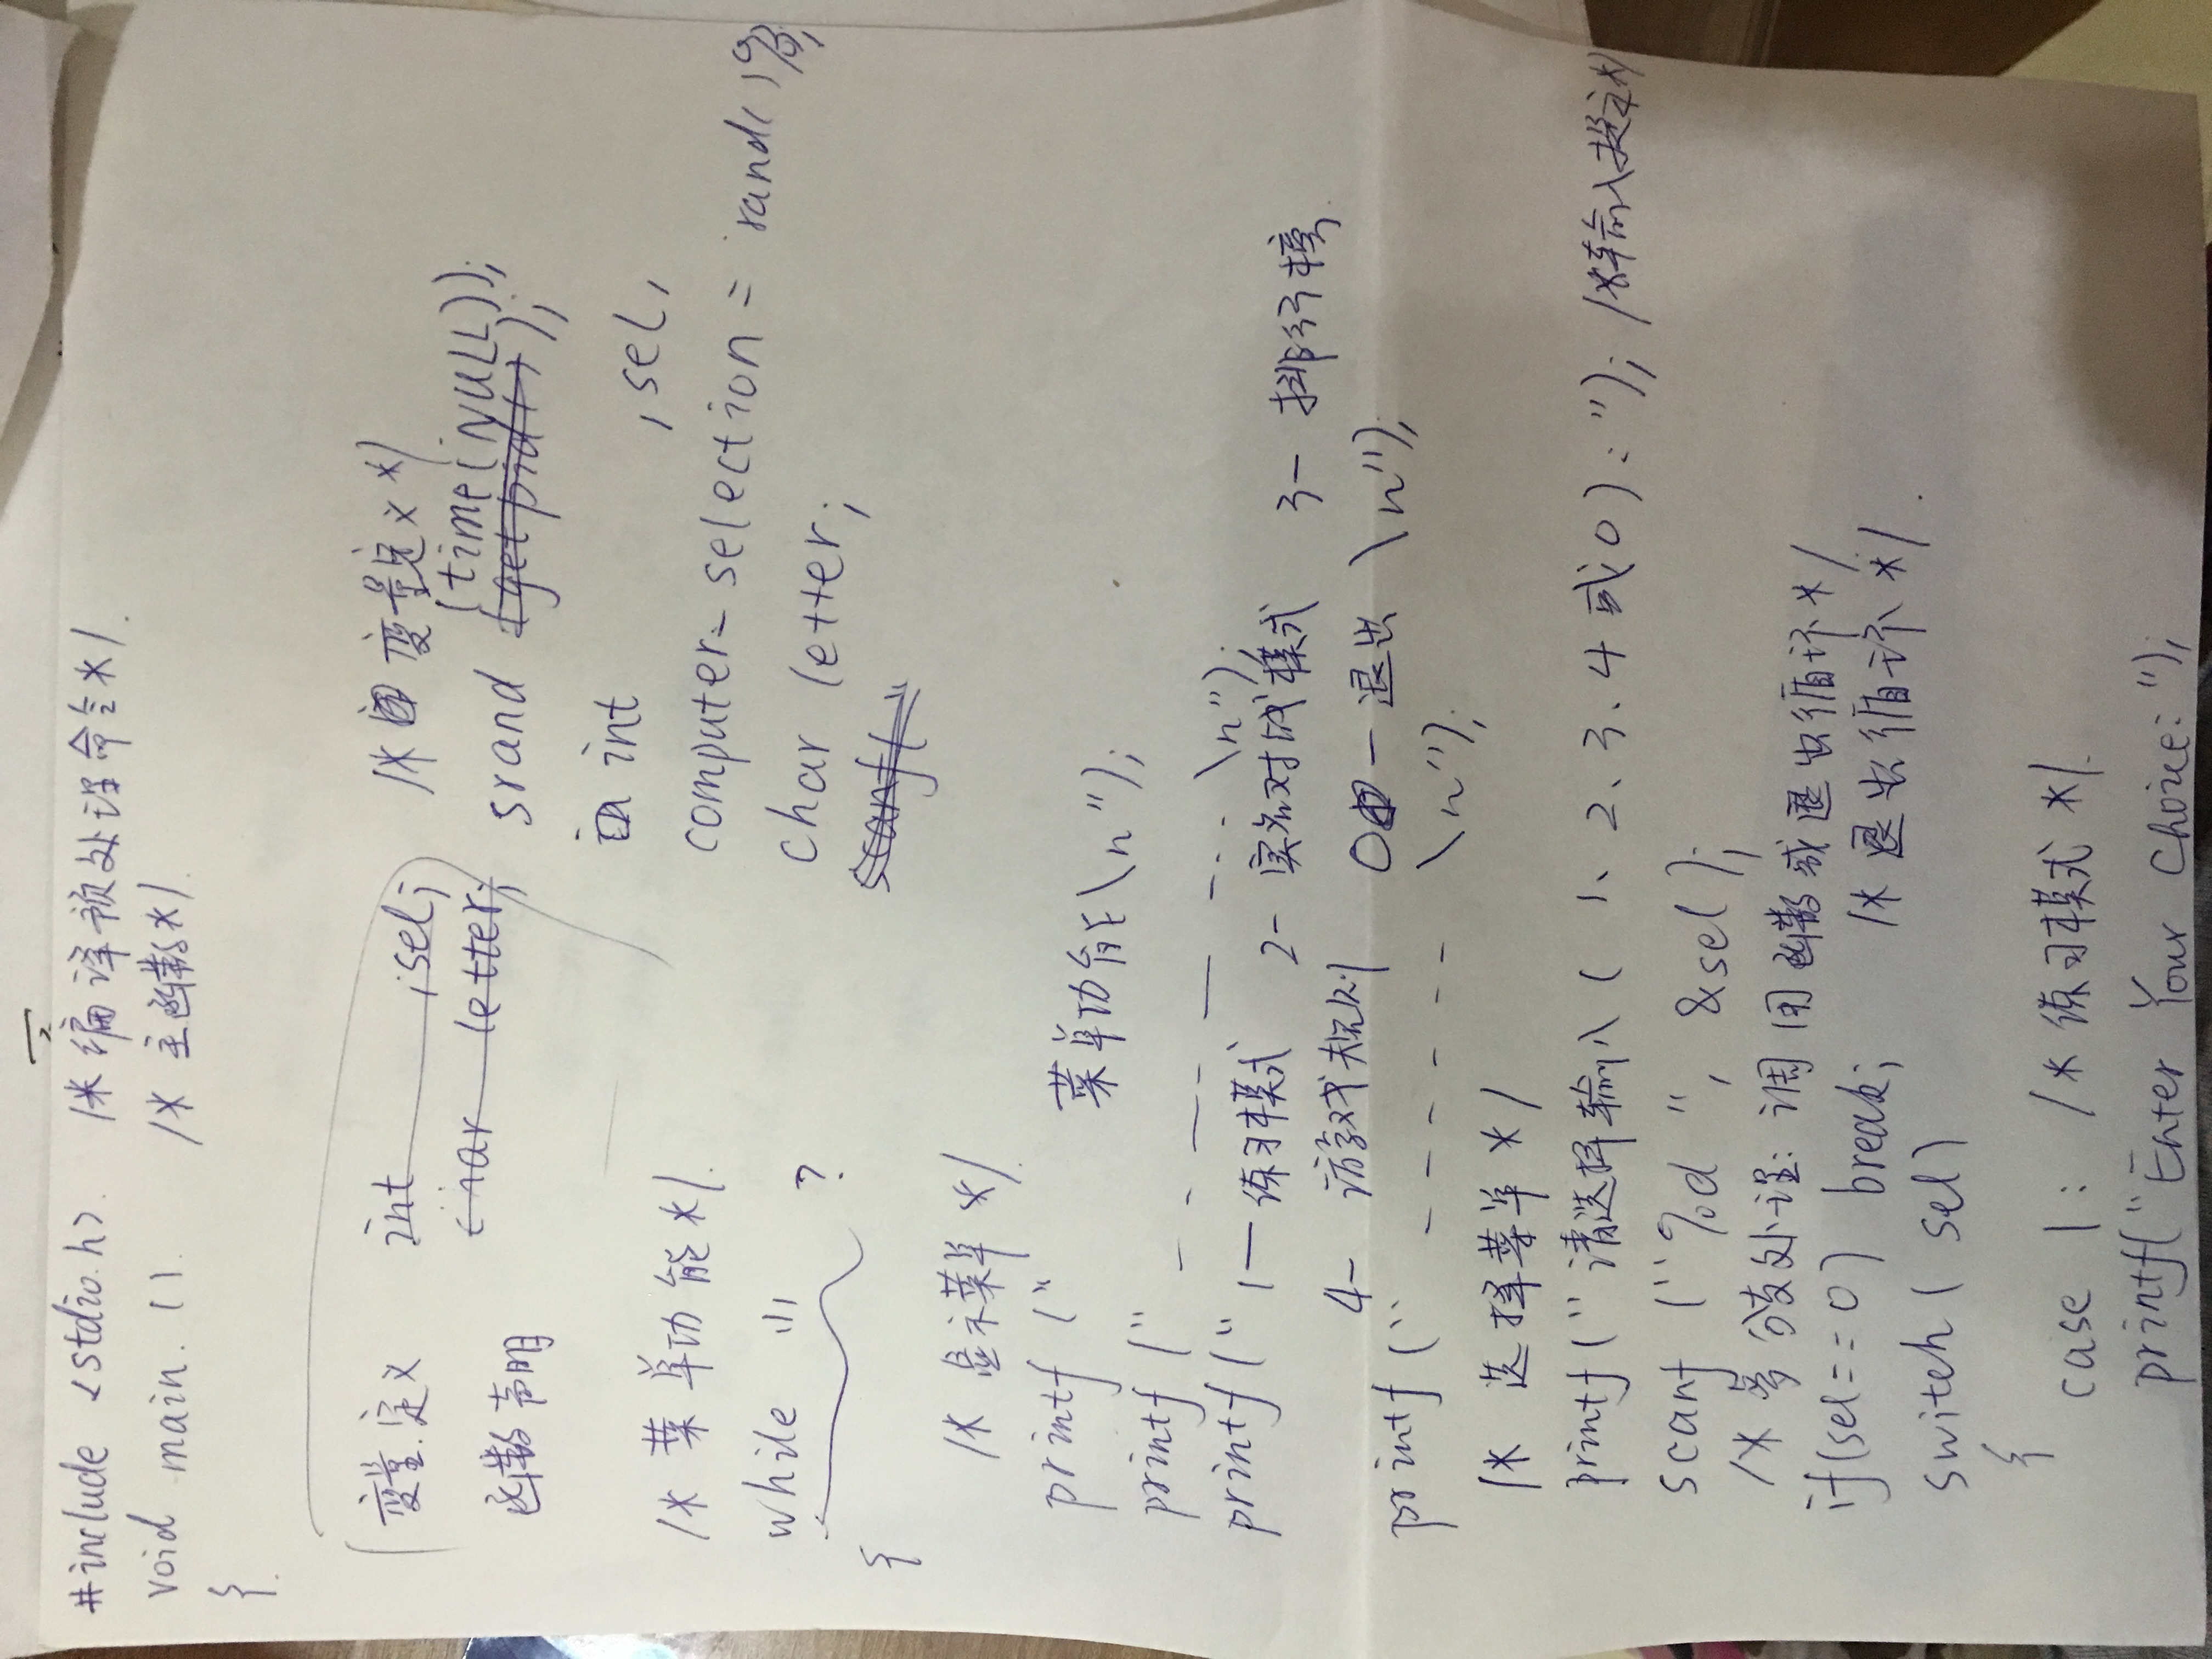 #include <stdio.h>   /*编译预处理命令*/
void main ()   /*主函数*/
{
变量定义   int   ,sel;   /* 变量定义 */
函数声明   char letter;   srand (time(NULL));
int   ,sel,
/* 菜单功能 */   computer-selection = rand()%3;
while (1)   char letter;
{   ?   scanf("
/* 显示菜单 */
printf ("   菜单功能\n");
printf (" - - — - — - - \n");
printf (" 1—练习模式   2- 实际对战模式   3- 排行榜
4- 游戏规则   0—退出   \n");
printf (" - - - - - - \n");
/* 选择菜单 */
printf (" 请选择输入 ( 1、2、3、4或0) : "); /*输入提示*/
scanf ("%d ", &sel);
/* 多分支处理: 调用函数或退出循环 */
if(sel==0) break;   /* 退出循环 */
switch ( sel)
{
case 1:   /* 练习模式 */
printf("Enter Your Choice: ");